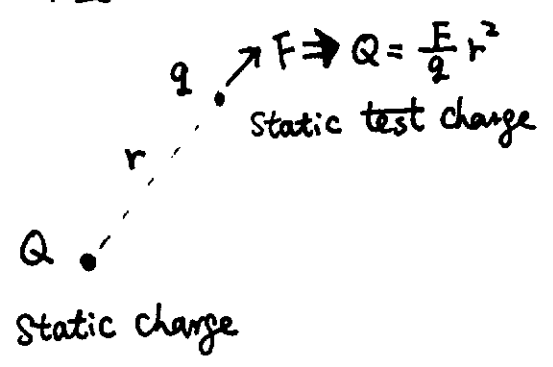 q F ⇒ Q = F/q r²
static test charge
r
Q
static charge